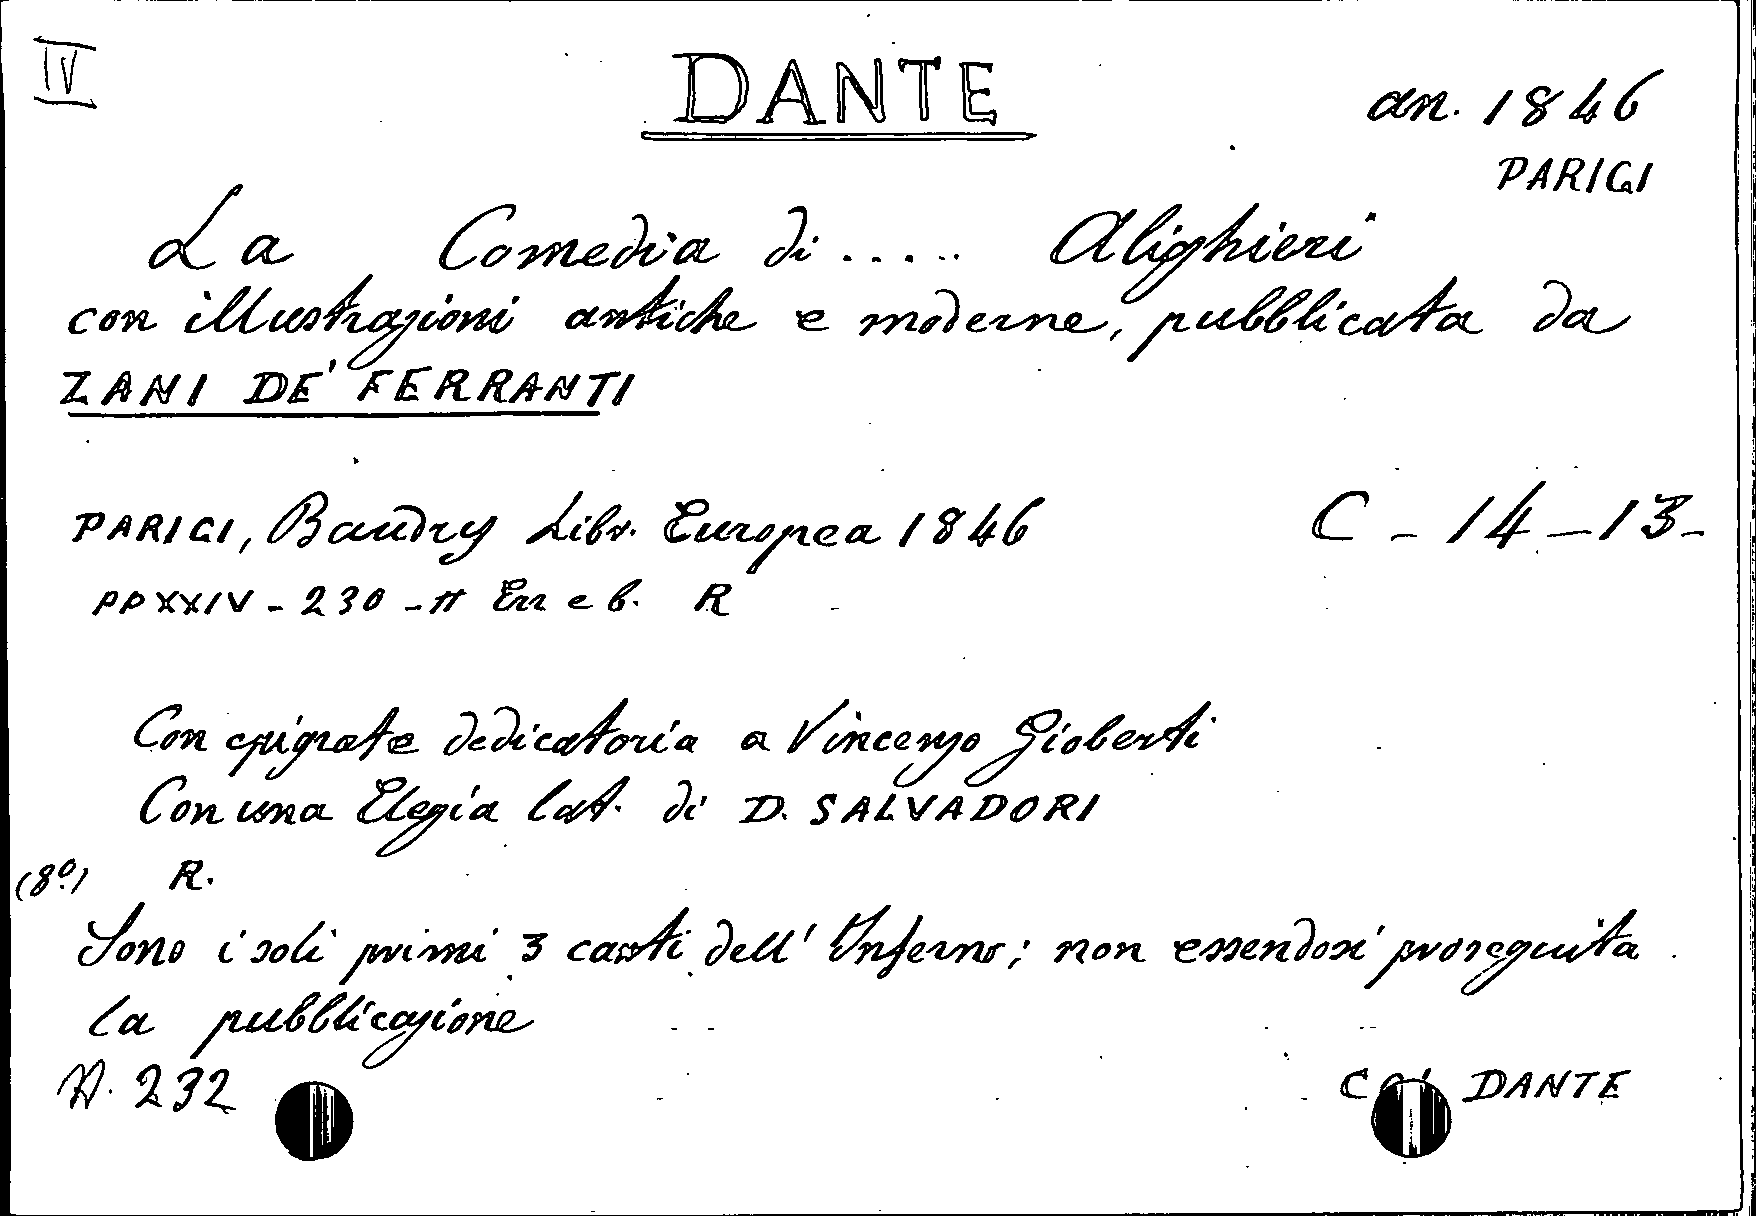 IV
DANTE
an. 1846
PARIGI
La Comedia di ..... Alighieri
con illustrazioni antiche e moderne, pubblicata da
ZANI DE' FERRANTI
PARIGI, Baudry Libr. Europea 1846
C - 14 - 13 -
PP XXIV - 230 - Err e b. R
Con epigrafe dedicatoria a Vincenzo Gioberti
Con una Elegia lat. di D. SALVADORI
(8º) R.
Sono i soli primi 3 canti dell' Inferno; non essendosi proseguita
la pubblicazione
N. 232
DANTE